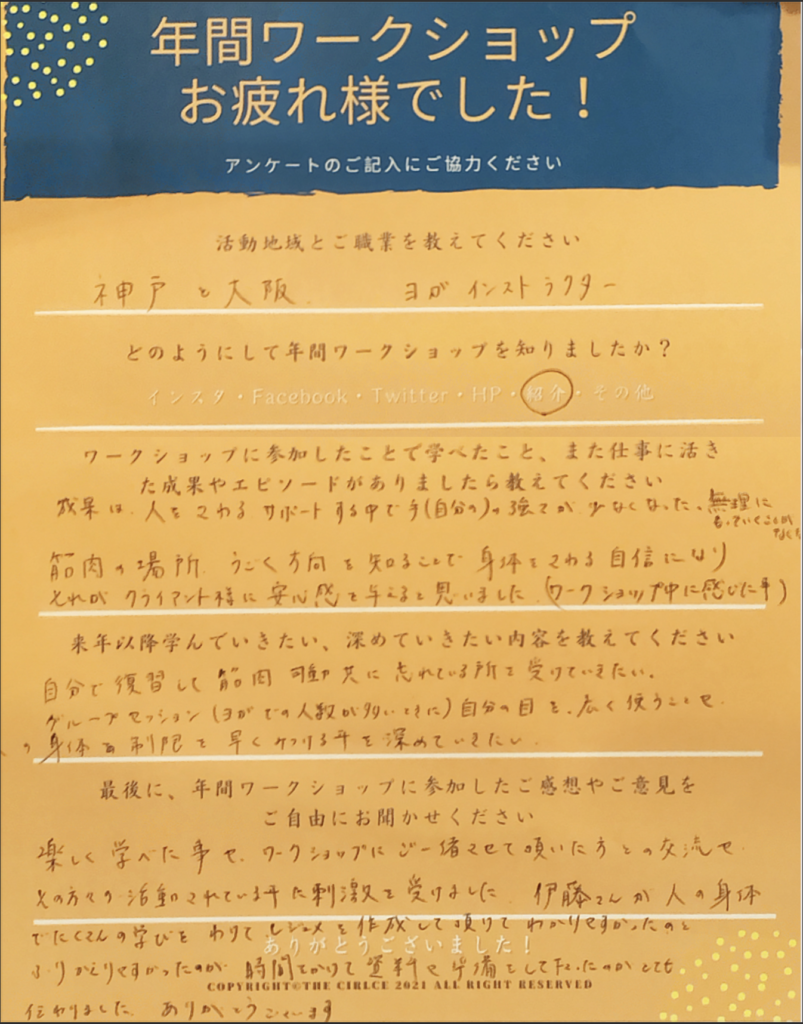 年間ワークショップ
お疲れ様でした！
アンケートのご記入にご協力ください
活動地域とご職業を教えてください
神戸と大阪. ヨガインストラクター
どのようにして年間ワークショップを知りましたか？
インスタ・Facebook・Twitter・HP・紹介・その他
ワークショップに参加したことで学べたこと、また仕事に活き
た成果やエピソードがありましたら教えてください
成果は、人をさわるサポートする中で手(自分の)の強ばりが少なくなった、無理に
もっていくことが
なく
筋肉の場所、うごく方向を知ることで身体をさわる自信になり
それがクライアント様に安心感を与えると思いました。(ワークショップ中に感じた事)
来年以降学んでいきたい、深めていきたい内容を教えてください
自分で復習して筋肉可動共に忘れている所を受けていきたい。
グループセッション(ヨガでの人数が多いときに)自分の目を、広く使うことや、
の身体の制限を早くみつける事を深めていきたい。
最後に、年間ワークショップに参加したご感想やご意見を
ご自由にお聞かせください
楽しく学べた事や、ワークショップにご一緒させて頂いた方との交流や、
その方々の活動されている事に刺激を受けました。伊藤さんが人の身体
でたくさんの学びをわりてレジュメを作成して頂けてわかりやすかったのと
ありがとうございました！
ふりかえりやすかったのが、時間をかけて資料や準備をして下さったのがとても
COPYRIGHT©THE CIRLCE 2021 ALL RIGHT RESERVED
伝わりました。ありがとうございます